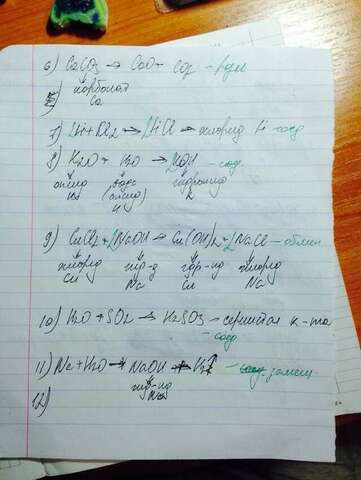 6) CaCO3 → CaO + CO2 - разл
карбонат
Ca
7) 2Li + Cl2 → 2LiCl → хлорид Li - соед
8) K2O + H2O → 2KOH - соед.
оксид вода гидроксид
(оксид K
H)
9) CuCl2 + 2NaOH → Cu(OH)2 + 2NaCl - обмен
хлорид гид-д гидр-ид хлорид
Cu Na Cu Na
10) H2O + SO2 → H2SO3 - сернистая к-та
соед
11) Na + H2O → NaOH + H2↑ - замещ.
гидр-ид
Na
12)